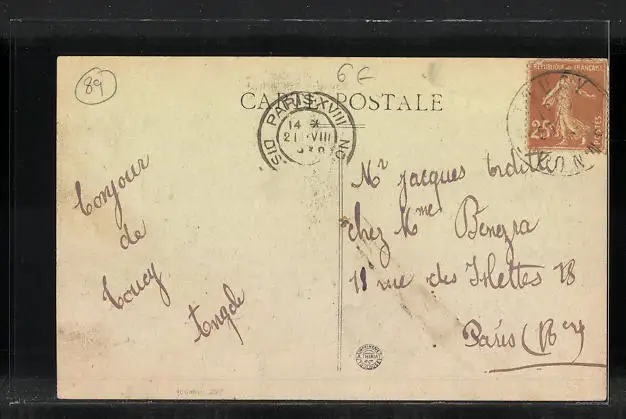 89
6 €
CARTE POSTALE
RÉPUBLIQUE FRANÇAISE
25c
PARIS XVIII
14 *
21 VIII
DIS ON
Bonjour
de
Toucy
Angèle
Mr Jacques
chez Mme Benezra
11 rue des Islettes 18
Paris